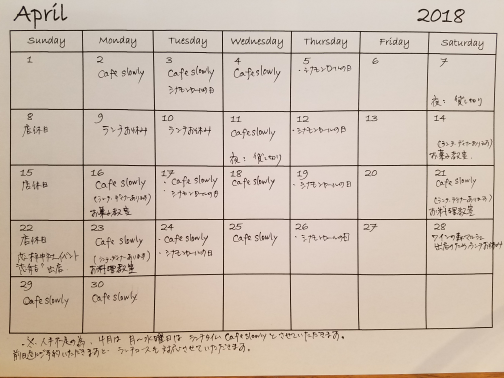 April 2018
Sunday Monday Tuesday Wednesday Thursday Friday Saturday
1 2 3 4 5 6 7
Cafe slowly Cafe slowly Cafe slowly ・シナモンロールの日
シナモンロールの日
夜: 貸し切り
8 9 10 11 12 13 14
店休日 ランチお休み ランチお休み Cafe slowly ・シナモンロールの日
夜: 貸し切り (ランチ・ディナーあります)
お菓子教室
15 16 17 18 19 20 21
店休日 Cafe slowly ・Cafe slowly Cafe slowly ・シナモンロールの日 Cafe slowly
(ランチ・ディナーあります) ・シナモンロールの日 (ランチ・ディナーあります)
お菓子教室 お料理教室
22 23 24 25 26 27 28
店休日 Cafe slowly ・Cafe slowly Cafe slowly ・シナモンロールの日
(ランチ・ディナーあります) ・シナモンロールの日 出店のためランチお休み
出店 お料理教室
29 30
Cafe slowly Cafe slowly
・※人手不足の為、4月は月〜水曜日はランチタイムCafe slowlyとさせていただきます。
前日迄に予約いただきますと ランチコースも対応させていただきます。